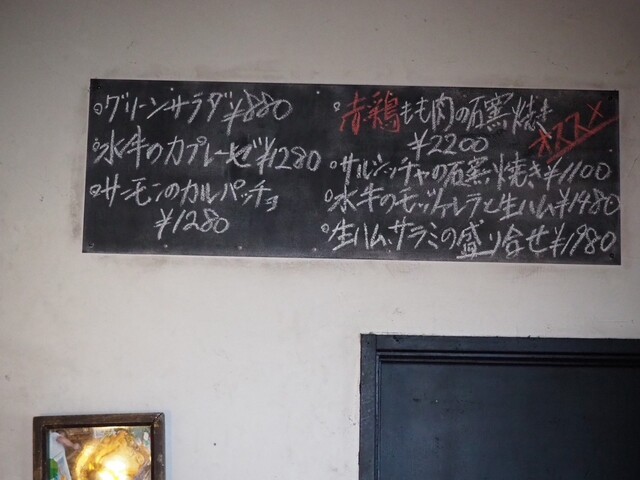 グリーンサラダ ¥880
水牛のカプレーゼ ¥1280
サーモンのカルパッチョ
¥1280
赤鶏もも肉の石窯焼き オススメ
¥2200
サルシッチャの石窯焼き ¥1100
水牛のモッツァレラと生ハム ¥1480
生ハムサラミの盛り合せ ¥1980